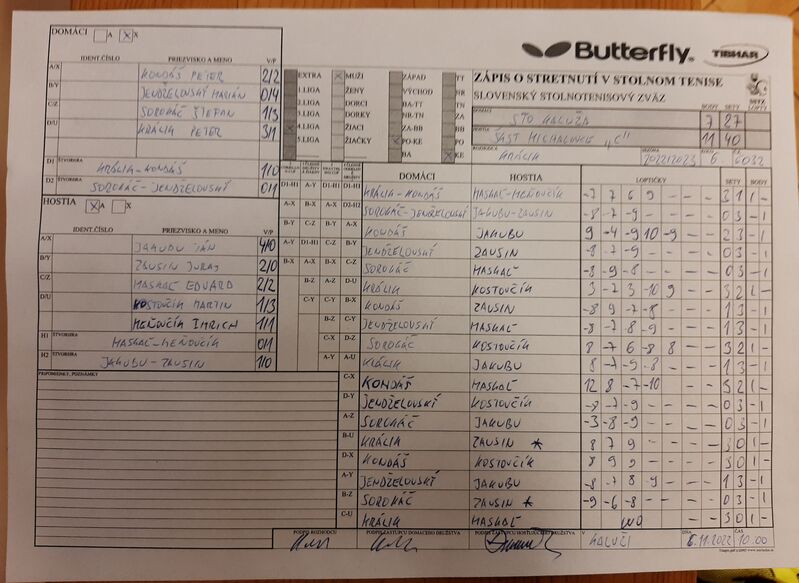 DOMÁCI A X
IDENT.ČÍSLO PRIEZVISKO A MENO V/P
A/X KONDÁŠ PETER 2/2
B/Y JENDŽELOVSKÝ MARIÁN 0/4
C/Z SOROKÁČ ŠTEFAN 1/3
D/U KRÁLIK PETER 3/1
D1 ŠTVORHRA KRÁLIK-KONDÁŠ 1/0
D2 ŠTVORHRA SOROKÁČ-JENDŽELOVSKÝ 0/1
HOSTIA A X
IDENT.ČÍSLO PRIEZVISKO A MENO V/P
A/X JAKUBU JÁN 4/0
B/Y ZAUSIN JURAJ 2/0
C/Z MASKAĽ EDUARD 2/2
D/U KOSTOVČÍK MARTIN 1/3
HEŇOVČÍK IMRICH 1/1
H1 ŠTVORHRA MASKAĽ-HEŇOVČÍK 0/1
H2 ŠTVORHRA JAKUBU-ZAUSIN 1/0
PRIPOMIENKY, POZNÁMKY
EXTRA MUŽI ZÁPAD TT
1.LIGA ŽENY VÝCHOD NR
2.LIGA DORCI BA-TT TN
3.LIGA DORKY NR-TN ZA
4.LIGA ŽIACI ZA-BB BB
5.LIGA ŽIAČKY PO-KE PO
BA KE
Butterfly TIBHAR
ZÁPIS O STRETNUTÍ V STOLNOM TENISE
SLOVENSKÝ STOLNOTENISOVÝ ZVÄZ
DOMÁCI STO KALUŽA BODY 7 SETY 27
HOSTIA ŠAST MICHALOVCE "C" 11 40
ROZHODCA KRÁLIK SEZÓNA 2022/2023 6 6032
DOMÁCI HOSTIA LOPTIČKY SETY BODY
D1-H1 A-Y D1-H1 D1-H1 KRÁLIK-KONDÁŠ MASKAĽ-HEŇOVČÍK -7 7 6 9 - - - 3 1 1 -
A-X B-X A-X D2-H2 SOROKÁČ-JENDŽELOVSKÝ JAKUBU-ZAUSIN -8 -7 -9 - - - - 0 3 - 1
B-Y C-Z B-Y A-X KONDÁŠ JAKUBU 9 -4 -9 10 -9 - - 2 3 - 1
A-Y D1-H1 C-Z B-Y JENDŽELOVSKÝ ZAUSIN -8 -7 -9 - - - - 0 3 - 1
B-X A-X B-X C-Z SOROKÁČ MASKAĽ -8 -9 -8 - - - - 0 3 - 1
B-Z A-Z D-U KRÁLIK KOSTOVČÍK 3 -7 3 -10 9 - - 3 2 1 -
C-Y C-Y B-X KONDÁŠ ZAUSIN -8 9 -7 -8 - - - 1 3 - 1
B-Z C-Y JENDŽELOVSKÝ MASKAĽ -8 -7 8 -9 - - - 1 3 - 1
C-X D-Z SOROKÁČ KOSTOVČÍK 8 -7 6 -8 8 - - 3 2 1 -
A-Y A-U KRÁLIK JAKUBU 8 -7 -9 -8 - - - 1 3 - 1
C-X KONDÁŠ MASKAĽ 12 8 -7 -10 - - 3 2 1 -
D-Y JENDŽELOVSKÝ KOSTOVČÍK -8 -7 -9 - - - - 0 3 - 1
A-Z SOROKÁČ JAKUBU -3 -8 -9 - - - - 0 3 - 1
B-U KRÁLIK ZAUSIN * 8 7 9 - - - - 3 0 1 -
D-X KONDÁŠ KOSTOVČÍK 8 9 9 - - - - 3 0 1 -
A-Y JENDŽELOVSKÝ JAKUBU -8 -7 8 -9 - - - 1 3 - 1
B-Z SOROKÁČ ZAUSIN * -9 -6 -8 - - - - 0 3 - 1
C-U KRÁLIK MASKAĽ WO 3 0 1 -
PODPIS ROZHODCU PODPIS ZÁSTUPCU DOMÁCEHO DRUŽSTVA PODPIS ZÁSTUPCU HOSTUJÚCEHO DRUŽSTVA
V KALUŽI 6.11.2022 ČAS 10.00